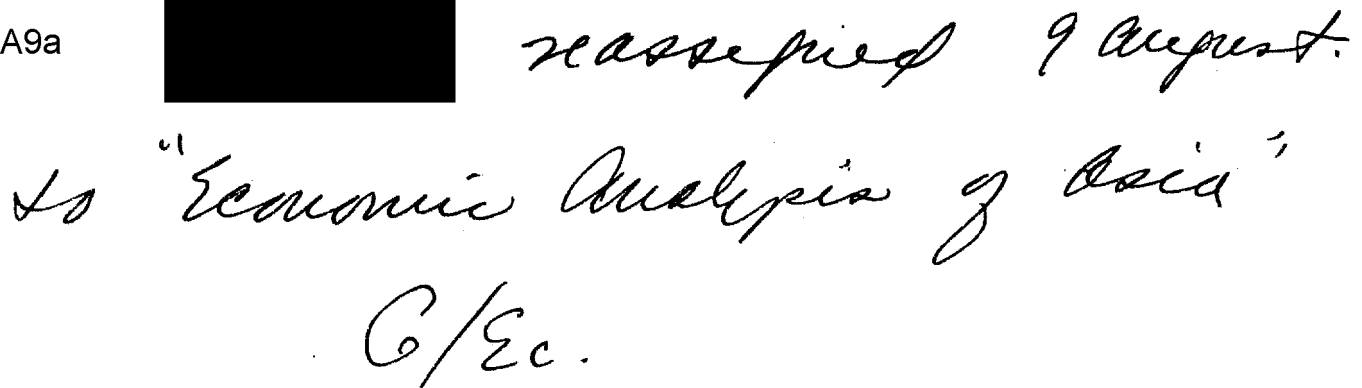 A9a reassigned 9 August.
to "Economic Analysis of Asia"
G/Ec.